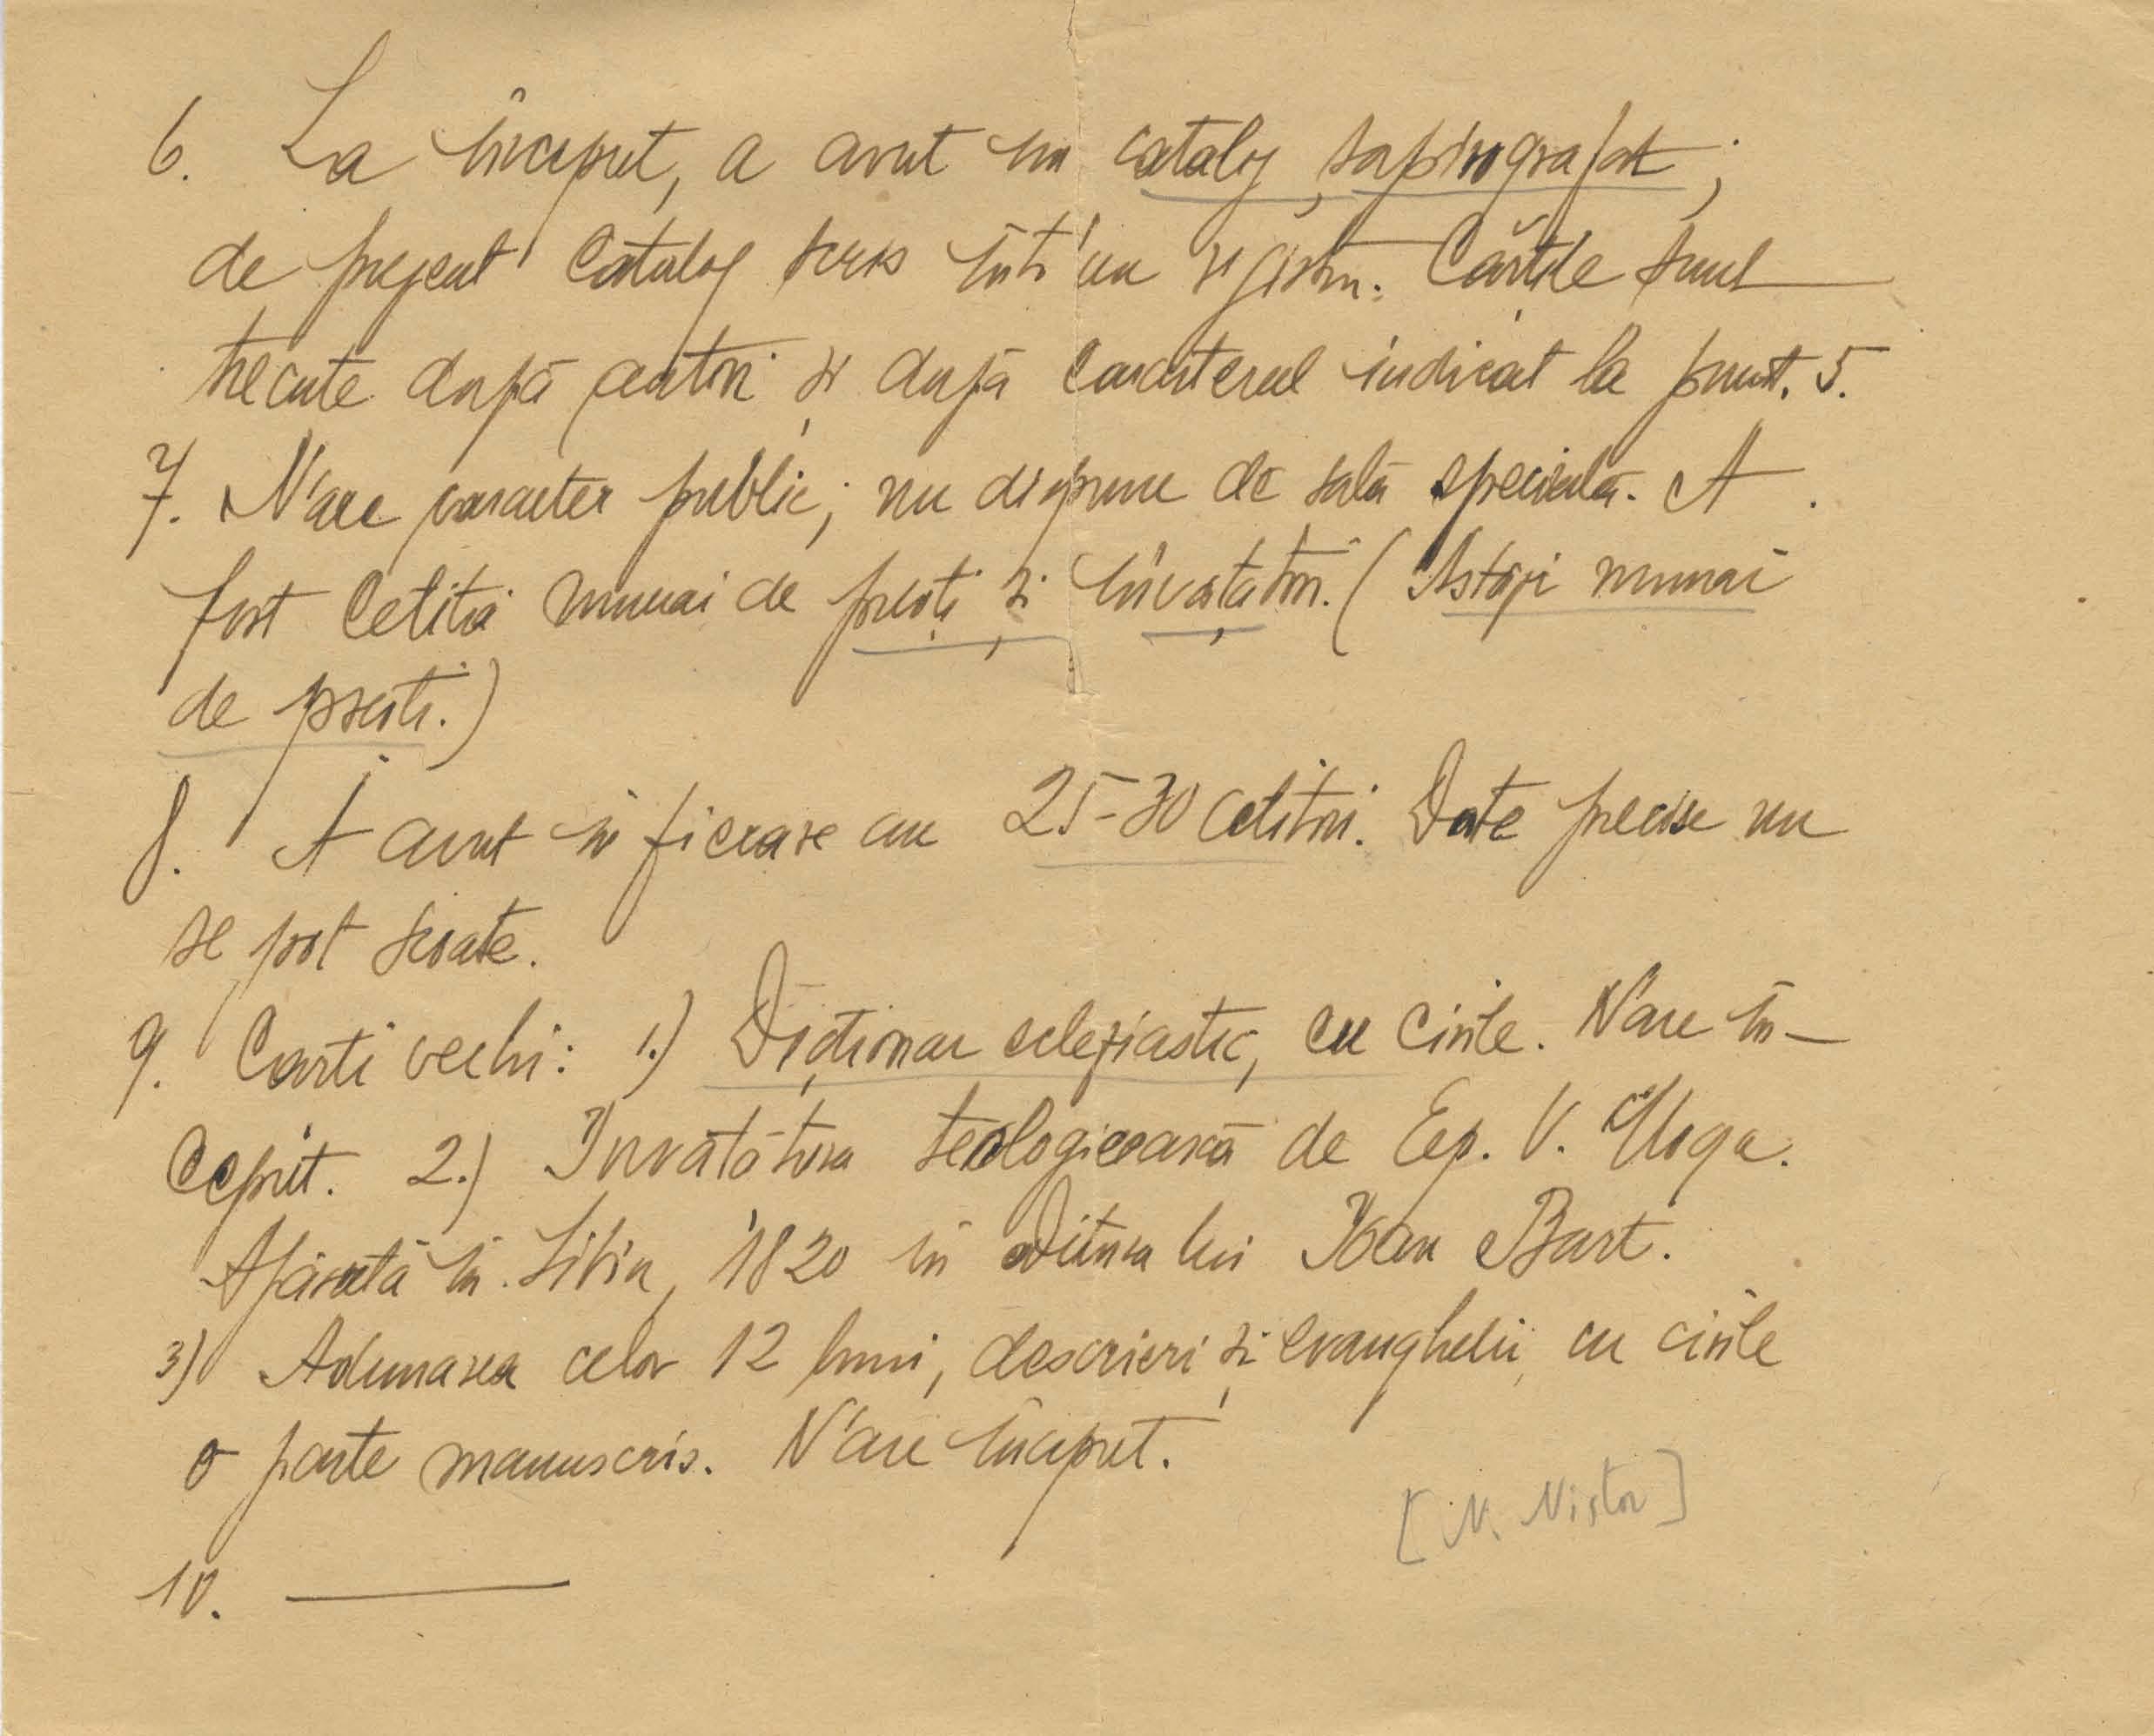 6. La început, a avut un catalog șapirografat;
de prezent catalog scris într'un registru. Cărțile sunt
trecute după autori și după caracterul indicat la punct. 5.
7. N'are caracter public; nu dispune de sală specială. A
fost cetită numai de preoți și învățători. (Astăzi numai
de preoți.)
8. A avut în fiecare an 25-30 cetitori. Date precise nu
se pot scoate.
9. Carti vechi: 1.) Dicționar ecleziastic, cu cirile. N'are în-
ceput. 2.) Invătătura teologicească de Eep. V. Moga.
Apărută în Sibiu, 1820 in editura lui Ioan Bart.
3) Adunarea celor 12 luni, descrieri și evanghelii, cu cirile
o parte manuscris. N'are început.
[N. Nistor]
10. ———